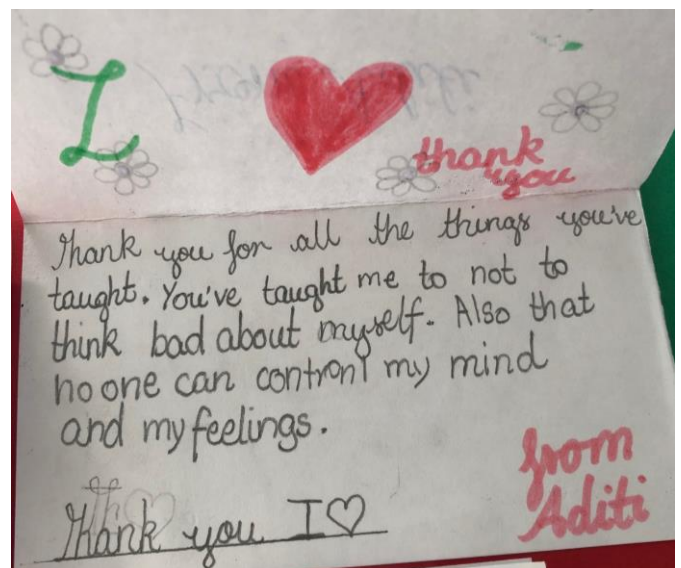 I ❤
thank
you
Thank you for all the things you've
taught. You've taught me to not to
think bad about myself. Also that
no one can contronl my mind
and my feelings.
from
Aditi
Thank you I ♡